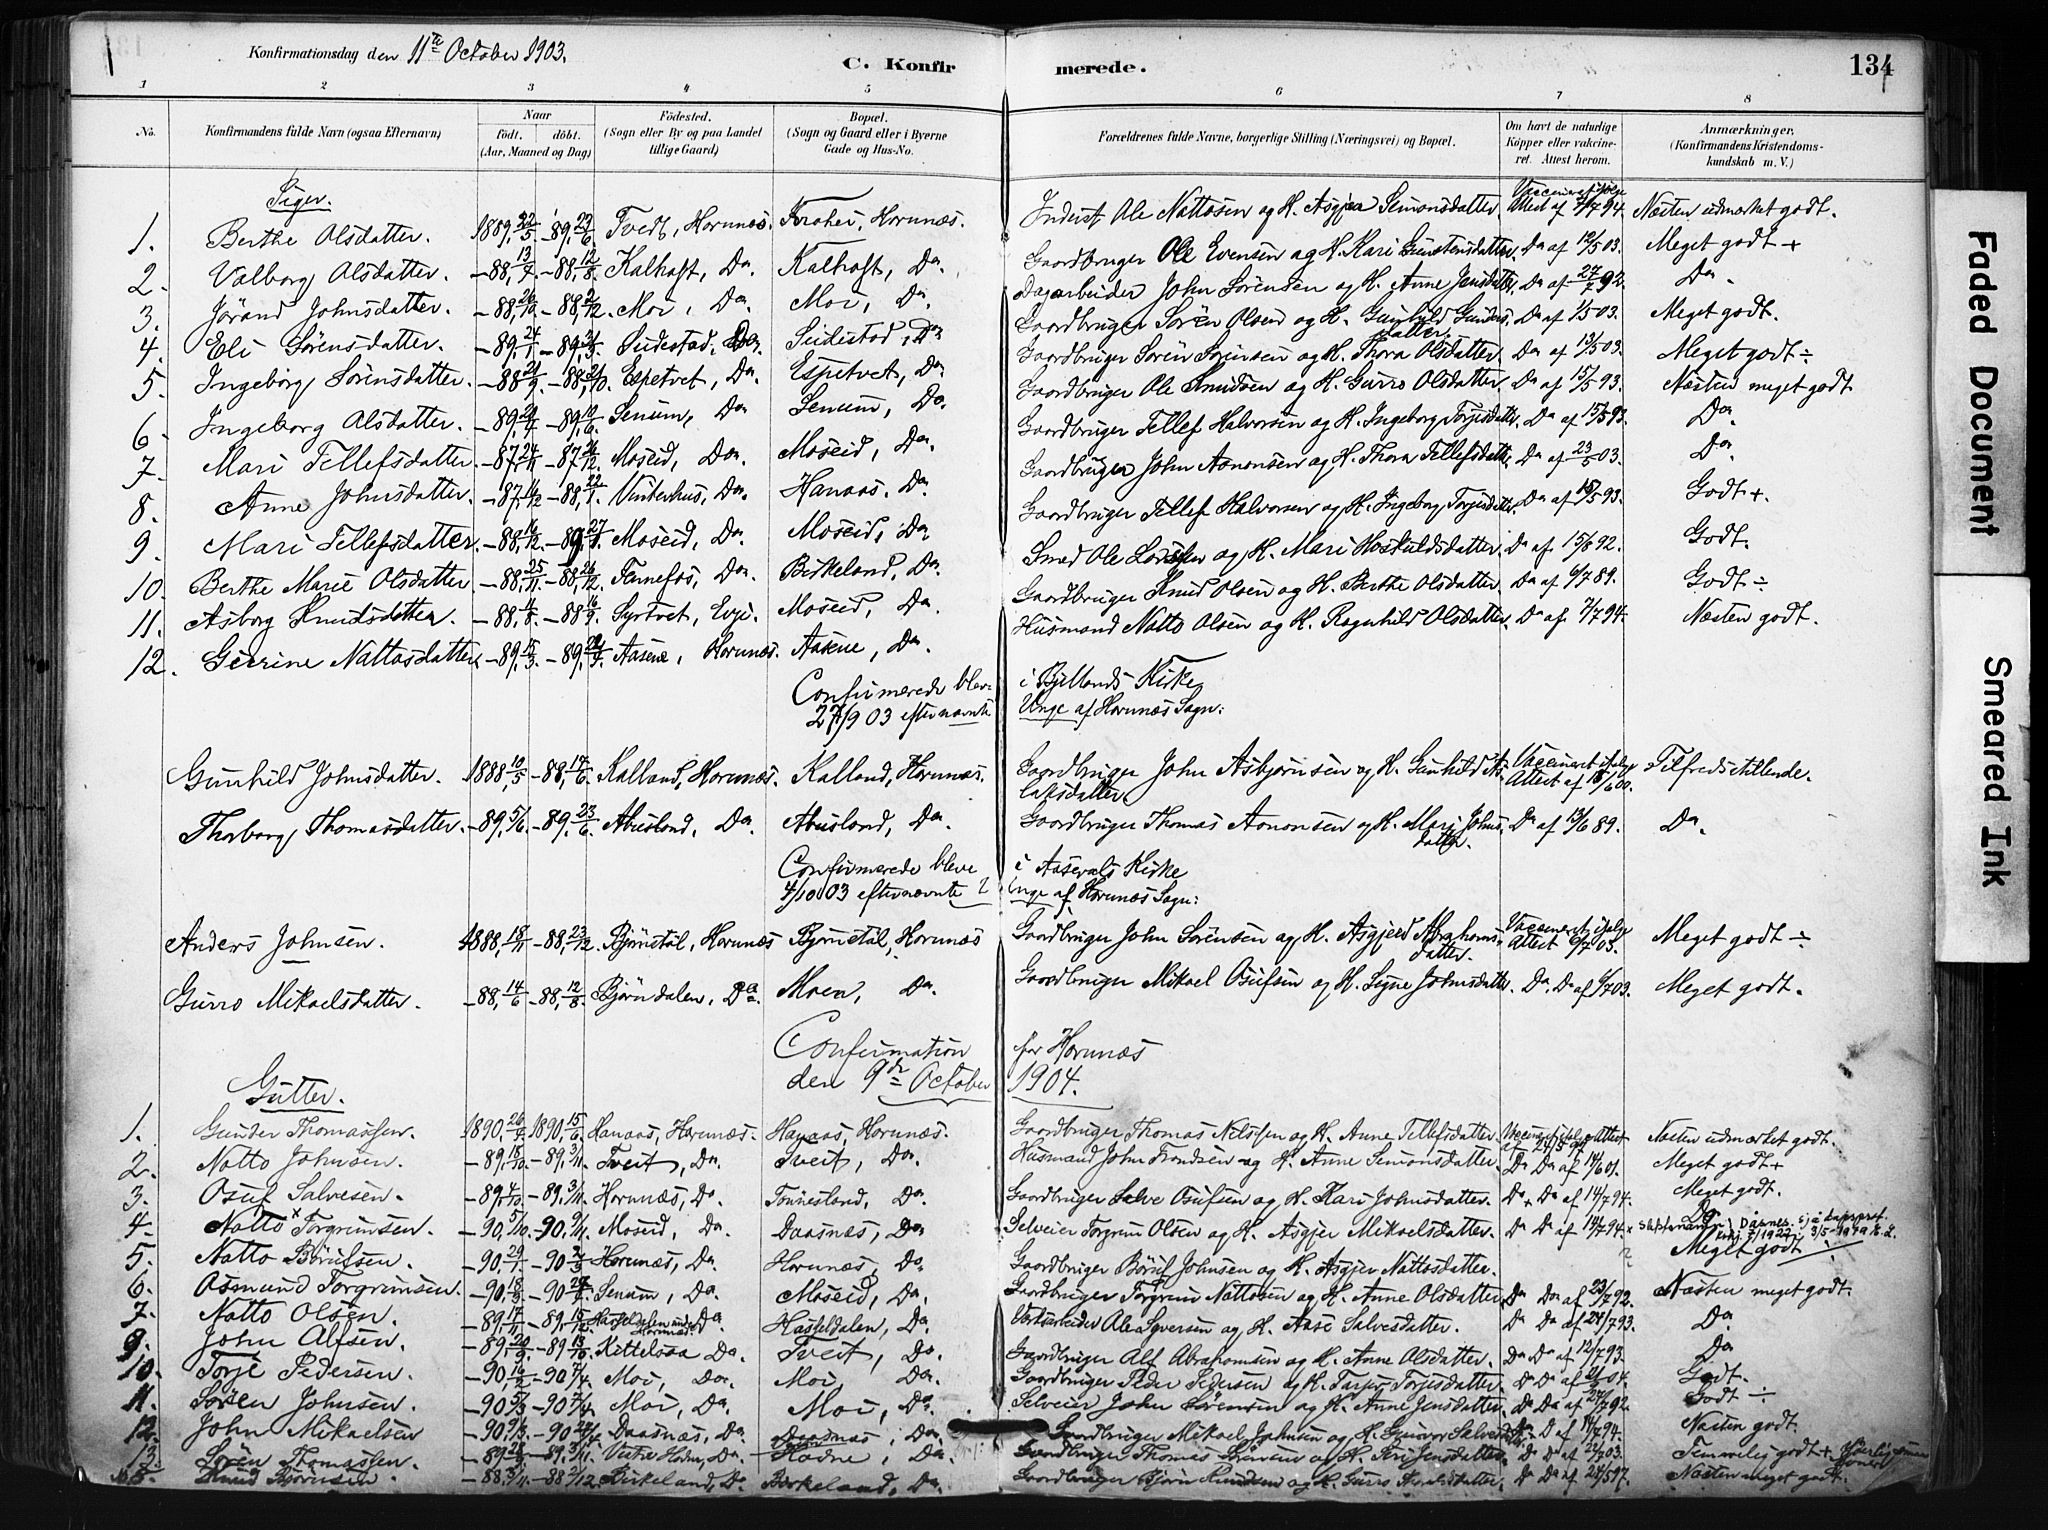 Konfirmationsdag den 11te October 1903.
C. Konfirmerede.
134
1 2 3 4 5 6 7 8
No. Konfirmandens fulde Navn (ogsaa Efternavn) Naar født. døbt. (Aar, Maaned og Dag) Fødested. (Sogn eller By og paa Landet tillige Gaard) Bopæl. (Sogn og Gaard eller i Byerne Gade og Hus-No. Forældrenes fulde Navne, borgerlige Stilling (Næringsvei) og Bopæl. Om havt de naturlige Köpper eller vakcineret. Attest herom. Anmærkninger. (Konfirmandens Kristendomskundskab m. V.)
Piger.
1. Berthe Olsdatter. 1889, 22/5. -89, 23/6. Tvedt, Hornnæs. Hornnæs. Inderst Ole Nattosen og H. Asgjer Simonsdatter. Vaccineret ifølge Attest af 7/7 94. Næsten udmærket godt.
2. Valborg Olsdatter. -88, 13/7. -88, 12/8. Kalhoft, Do. Kalhoft, Do. Gaardbruger Ole Evensen og H. Kari Gunstensdatter. Do af 12/5 03. Meget godt +
3. Jørand Johnsdatter. -88, 26/10. -88, 2/12. Moi, Do. Moi, Do. Dagarbeider John Sørensen og H. Anne Jensdatter. Do af 27/7 92. Do.
4. Eli Sørensdatter. -89, 24/1. -89, 24/3. Sudestad, Do. Seidestad, Do. Gaardbruger Søren Olsen og H. Gunhild Gundersdatter. Do af 1/5 03. Meget godt.
5. Ingeborg Sørensdatter. -88, 21/9. -88, 21/10. Espetvet, Do. Espetvet, Do. Gaardbruger Søren Sørensen og H. Thora Olsdatter. Do af 13/5 03. Meget godt ÷
6. Ingeborg Olsdatter. -89, Senum, Do. Senum, Do. Gaardbruger Ole Knudsen og H. Gurro Olsdatter. Do af 15/5 93. Næsten meget godt
7. Mari Tellefsdatter. -87, 24/11. -87, 26/12. Moseid, Do. Moseid, Do. Gaardbruger Tellef Halvorsen og H. Ingeborg Torjesdatter. Do af 15/5 93. Do.
8. Anne Johnsdatter. -87, -88, 22/1. Vinterhus, Do. Hanaas, Do. Gaardbruger John Aanonsen og H. Thora Tellefsdatter. Do af 23/5 03. Do.
9. Mari Tellefsdatter -88, 16/12. -89, 27/1. Moseid, Do. Moseid, Do. Gaardbruger Tellef Halvorsen og H. Ingeborg Torjesdatter. Do af 15/5 93. Godt +.
10. Berthe Marie Olsdatter -88, 25/11. -88, 26/12. Fennefos, Do. Birkeland, Do. Smed Ole og H. Mari Hoskuldsdatter. Do af 15/8 92. Godt.
11. Asborg Knudsdatter. -88, -88, Syrtvet, Evje. Moseid, Do. Gaardbruger Knud Olsen og H. Berthe Olsdatter. Do af 6/7 89. Godt ÷
12. Geerine Nattosdatter. -89, 15/3. -89, Aasene, Hornnæs. Aasene, Do. Husmand Natto Olsen og H. Ragnhild Olsdatter. Do af 7/7 94. Næsten godt.
Confirmerede bleve i Bjellands Kirke
27/9 03 efternævnte Unge af Hornnæs Sogn:
Gunhild Johnsdatter. 1888, 10/5. -88, 17/6. Kalland, Hornnæs. Kalland, Hornnæs. Gaardbruger John Asbjørnsen og H. Gunhild Aslaksdatter. Vaccineret ifølge Attest af 15/6 00. Tilfredsstillende.
Thorborg Thomasdatter. -89, 5/6. -89, 23/6. Abusland, Do. Abusland, Do. Gaardbruger Thomas Aanonsen og H. Mari Johnsdatter. Do af 13/6 89. Do.
Confirmerede bleve i Aaserals Kirke
4/10 03 efternævnte 2 Unge af Hornnæs Sogn:
Anders Johnsen. 1888, 18/11. -88, 23/12. Bjørnetøl, Hornnæs Bjørnetøl, Hornnæs Gaardbruger John Sørensen og H. Asgjerd Abrahamsdatter. Vaccineret ifølge Attest 6/7 03. Meget godt ÷
Gurro Mikaelsdatter. -88, 14/6. -88, 12/8. Bjørndalen, Do. Moen, Do. Gaardbruger Mikael Osufsen og H. Signe Johnsdatter. Do. Do af 6/7 03. Meget godt.
Confirmation for Hornnæs
den 9de October 1904.
Gutter.
1. Gunder Thomassen. 1890, 26/4. 1890, 15/6. Hanaas, Hornnæs. Hanaas, Hornnæs. Gaardbruger Thomas Nilssen og H. Anne Tellefsdatter. Næsten udmærket godt.
2. Natto Johnsen. -89, 18/10. -89, 3/11. Tveit, Do. Tveit, Do. Husmand John Trondsen og H. Anne Simonsdatter. Do Do af 14/6 01. Meget godt +
3. Osuf Salvesen. -89, 4/10. -89, 3/11. Hornnæs, Do. Tønnesland, Do. Gaardbruger Salve Osufsen og H. Kari Johnsdatter. Do Do af 14/7 94. Meget godt.
4. Natto × Torgrimsen. -90, -90, Moseid, Do. Daasnæs, Do Selveier Torgrim Olsen og H. Asgjer Mikaelsdatter. Do Do af 14/7 94. × Do.
5. Natto Børufsen. -90, 29/1. -90, Hornnæs, Do. Hornnæs, Do. Gaardbruger Børuf Johnsen og H. Asgjer Nattosdatter. Meget godt.
6. Osmund Torgrimsen. -90, 18/3. -90, Senum, Do. Moseid, Do. Gaardbruger Torgrim Nattosen og H. Anne Olsdatter. Do Do af 23/7 92. Næsten meget godt.
7. Natto Olsen. -89, 17/11. -89, Hasseldalen, Do. Hasseldalen, Do. Ole Syversen og H. Aase Salvesdatter. Do Do af 24/7 93. Do.
9. John Alfsen. -89, 20/9. -89, 13/10. Kittelsaa Do. Tveit, Do. Gaardbruger Alf Abrahamsen og H. Anne Olsdatter. Do Do af 12/7 93. Do
10. Torje Pedersen. -90, 16/2. -90 7/4. Moi, Do. Moi, Do. Gaardbruger Peder Pedersen og H. Torjesdatter. Do Do af Godt.
11. Søren Johnsen. -90 -90 Moi, Do. Moi, Do. Selveier John Sørensen og H. Anne Jensdatter. Do Do af 27/7 92. Godt ÷
12. John Mikaelsen -90, -90 Daasnæs, Do. Daasnæs, Do. Gaardbruger Mikael Johnsen og H. Gunvor Salvesdatter. Do Do af 14/7 94. Næsten godt.
13. Søren Thomassen. -89 28/9 -89, 3/11. Vestre Hodne, Do. Hodne, Do. Gaardbruger Thomas Sørensen og H. Siri Jensdatter. Do Do af 22/7 03. Temmelig godt +
Knud Bjørnsen. -88 3/11. -88 2/12. Birkeland, Do. Birkeland, Do. Gaardbruger Bjørn Knudsen og H. Gurro Do Do af 24/5 97. Næsten meget godt.
Faded Document
Smeared Ink